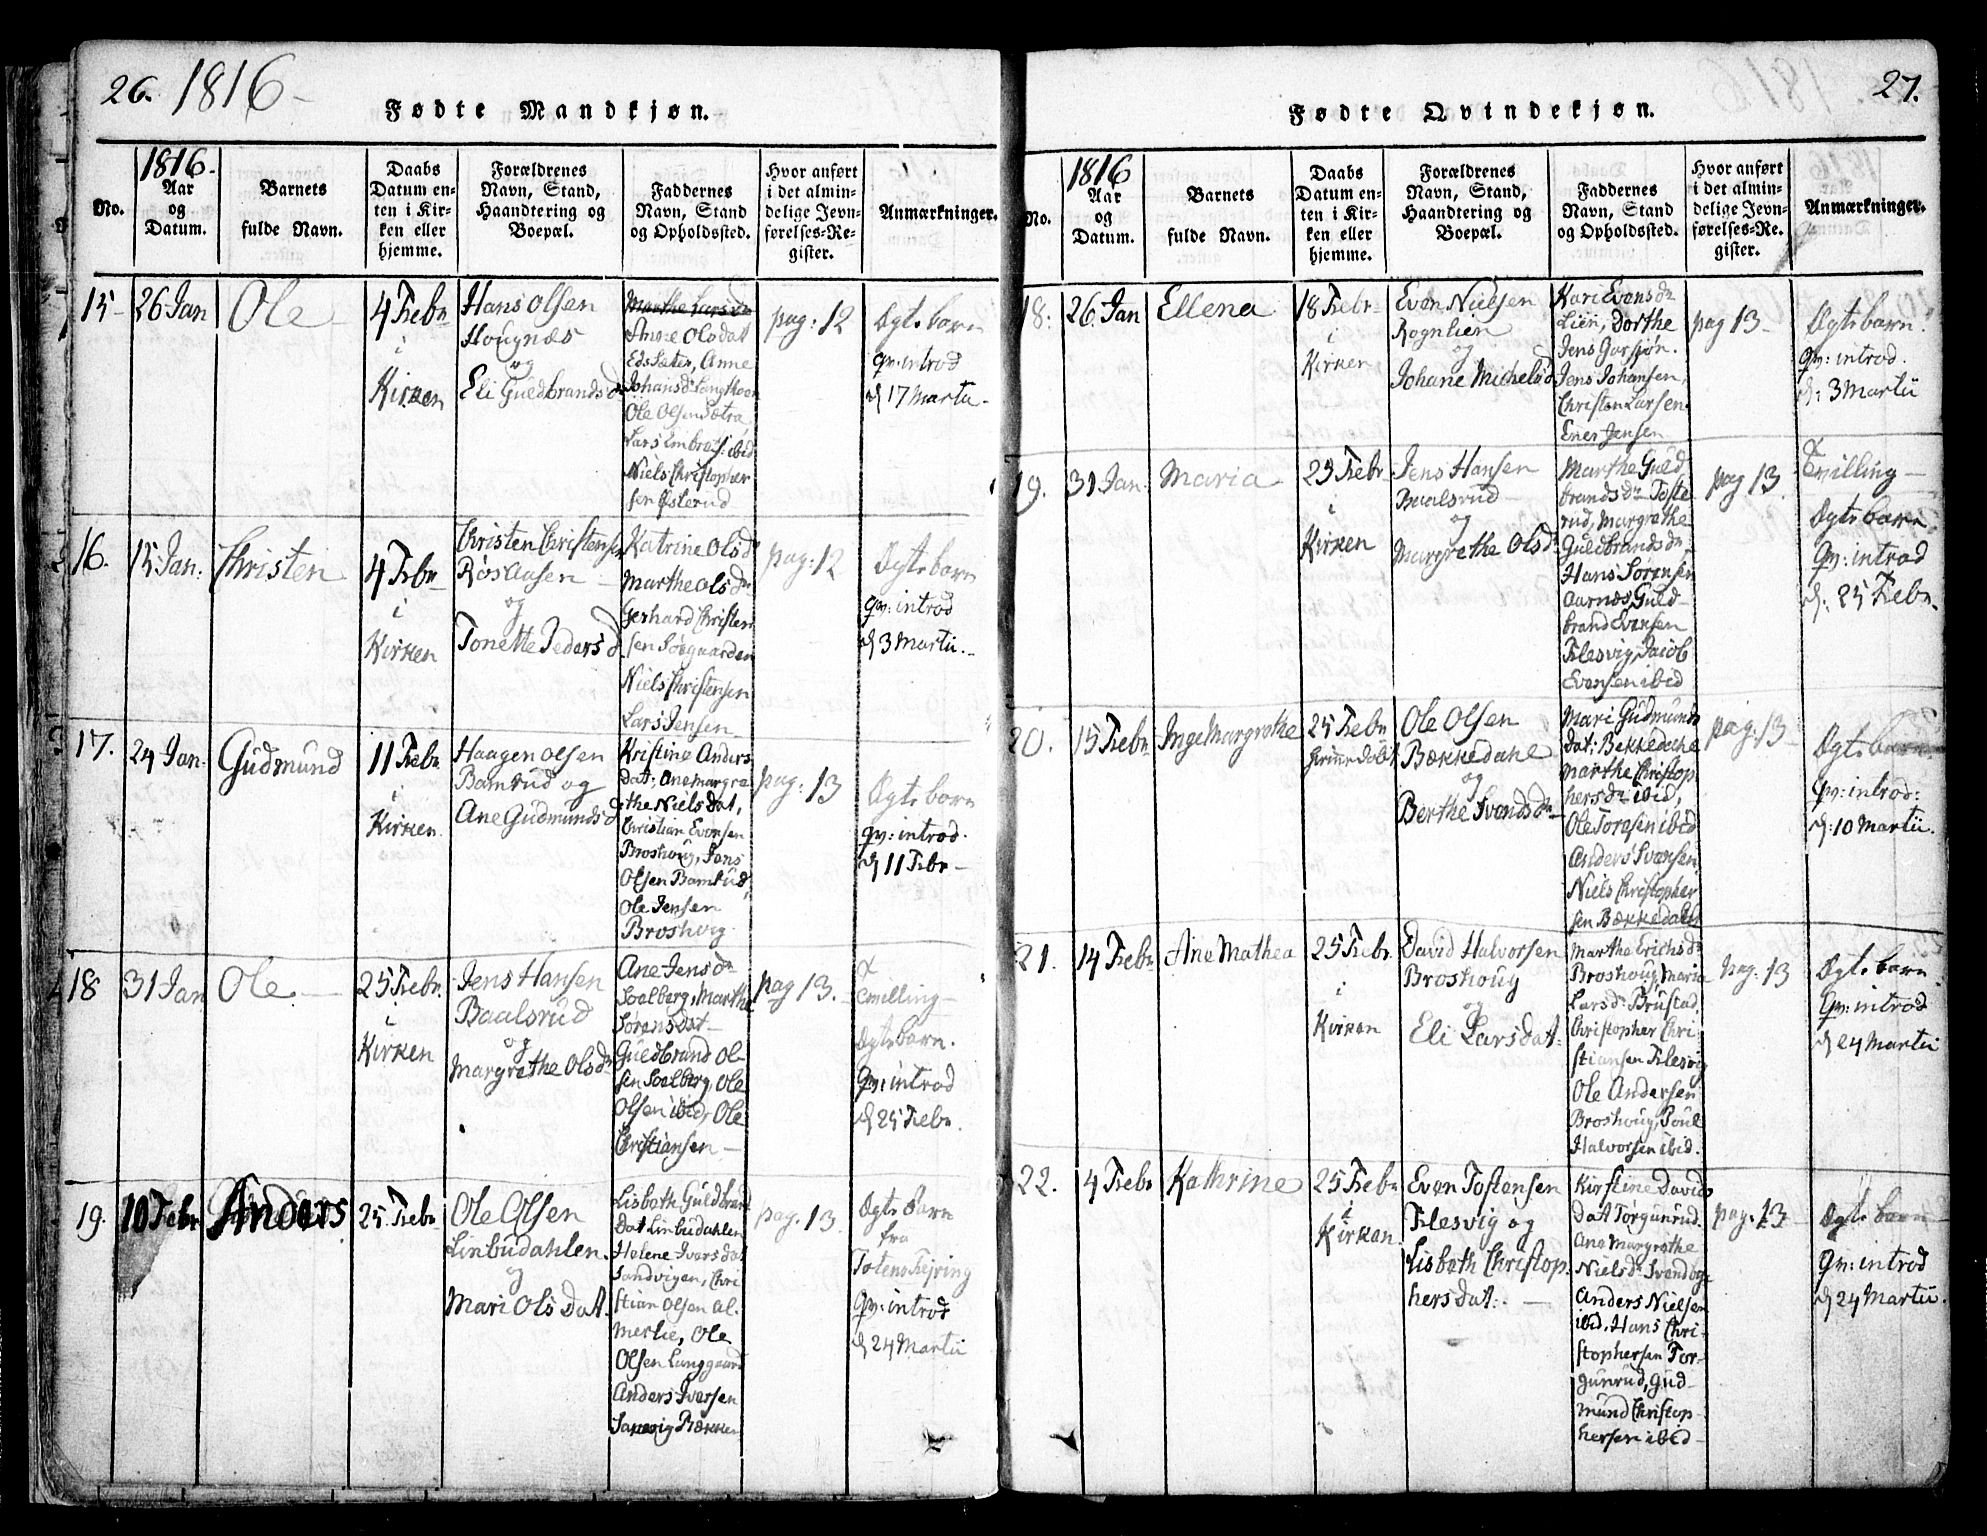 26. 1816
Fødte Mandkjøn.
No.
1816.
Aar
og
Datum.
Barnets
fulde Navn.
Daabs
Datum en-
ten i Kir-
ken eller
hjemme.
Forældrenes
Navn, Stand,
Haandtering og
Boepæl.
Faddernes
Navn, Stand
og Opholdssted.
Hvor anført
i det almin-
delige Jevn-
førelses-Re-
gister.
Anmærkninger.
15
26 Jan
Ole
4 Febr
i
Kirken
Hans Olsen
Hougnæs
og
Eli Guldbrandsd
Marthe Larsda
Anne Olsdatt
Anne
Ole Olsen Sætra
Niels Christopher
sen Østerud
pag: 12
Ægte barn
qv: introd
d 17 Martii.
16.
15 Jan:
Christen
4 Febr
i
Kirken
Christen Christensen
Røslasen
og
Tonette Pedersd.
Katrine Olsdr
Marthe Olsdr
Gerhard Christen
sen Søegaarden
Niels Christensen
Lars Jensen
pag: 12
Ægte barn
qv: introd
d 3 Martii.
17.
24 Jan.
Gudmund
11 Febr
i
Kirken
Haagen Olsen
Bamrud og
Ane Gudmundsd
Kristine Anders
dat; Ane Margre
the Nielsdat,
Christian Evensen
Broshoug, Jens
Olsen Bamrud,
Ole Jensen
Broshoug
pag: 13
Ægte barn
qv: introd.
d 11 Febr
18
31 Jan
Ole
25 Febr.
i
Kirken
Jens Hansen
Baalsrud
og
Margrethe Olsdr
Ane Jensdr
Soelberg, Marthe
Sørensdat
Guldbrand Ol
sen Soelberg, Ole
Olsen ibid, Ole
Christiansen
pag 13.
Tvilling
Ægte barn.
Qv: introd
d 25 Febr.
19.
10 Febr
Anders
25 Febr
Ole Olsen
Linbudahlen.
og
Mari Olsdat.
Lisbeth Guldbran
dat Linbudahlen
Helene Iversdat
Sandvigen, Chri
stian Olsen Al-
merlie, Ole
Olsen Lunggaard
Anders Iversen
pag. 13.
Ægte Barn
fra
Totens Fjering
Qv: introd
d 24 Martii
27.
Fødte Qvindekjøn.
No.
1816
Aar
og
Datum.
Barnets
fulde Navn.
Daabs
Datum en-
ten i Kir-
ken eller
hjemme.
Forældrenes
Navn, Stand,
Haandtering og
Boepæl.
Faddernes
Navn, Stand
og Opholdssted.
Hvor anført
i det almin-
delige Jevn-
førelses-Re-
gister.
Anmærkninger.
18.
26 Jan
Ellena
18 Febr
i
Kirken
Even Nielsen
Rognlien
og
Johane Michelsd
Kari Evensdr
Lien, Dorthe
Jens Garsjøn.
Jens Johansen,
Christen Larsen.
Ener Jensen
pag 13
Ægte barn.
qv: introd.
d: 3 Martii
19.
31 Jan.
Maria
25 Febr
i
Kirken
Jens Hansen
Baalsrud
og
Margrethe Olsdr
Marthe Guld
brandsdr Toste
rud, Margrethe
Guldbrandsdr
Hans Sørensen
Aarnæs, Guld-
brand Evensen
Flesvig, Jacob
Evensen ibid
pag 13.
Tvilling
Ægte barn
Qv: introd
d: 25 Febr.
20.
15 Febr
Inge Margrethe
25 Febr
Ole Olsen
Bækkedahl
og
Berthe Svendsdr
Mari Gudmunds
dat: Bekkedahl
Marthe Christop
hersdr ibid,
Ole Toresen ibid
Anders Svensen
Niels Christopher
sen Bækkedahl
pag: 13
Ægte barn
Qv: introd:
d: 10 Martii.
21.
14 Febr
Ane Mathea
25 Febr.
i
Kirken
David Halvorsen
Broshoug
og
Eli Larsdat.
Marthe Erichsdr
Broshoug, Maria
Larsdr Brustad,
Christopher Chri
stiansen Flesvig
Ole Andersen
Broshoug, Poul
Halvorsen ibid.
pag: 13
Ægte barn
Qv: introd
d 24 Martii
22.
4 Febr
Kathrine
25 Febr
i
Kirken
Even Tostensen
Flesvig og
Lisbeth Christop
hersdat:
Kirstine Davids
dat Torgunrud.
Ane Margrethe
Nielsdr
Anders Nielsen
ibid. Hans Chri-
stophersen Tor-
gunrud, Gud-
mund Christop-
hersen ibid
pag. 13
Ægte barn
Qv: introd
d 24 Martii.